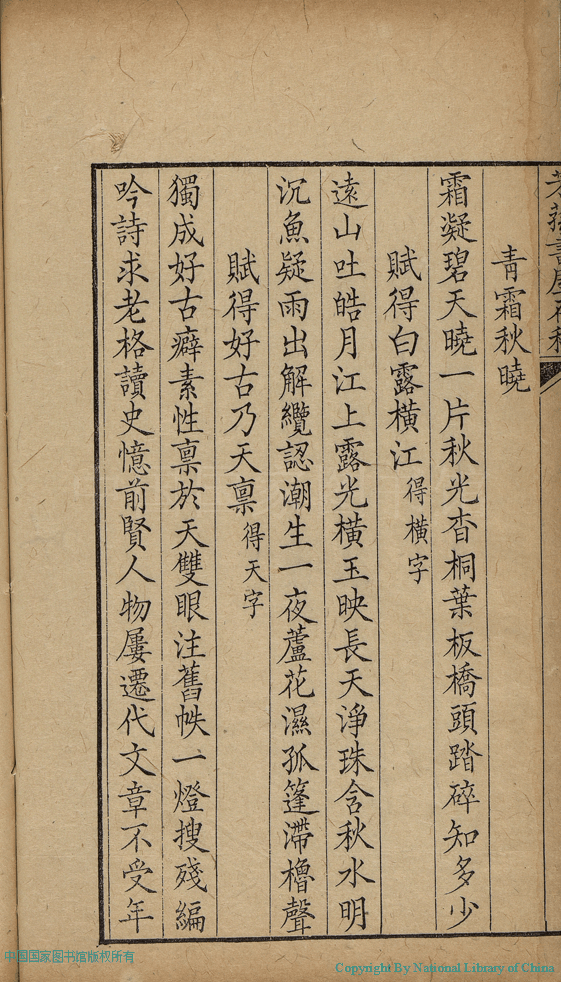 青霜秋曉
霜凝碧天曉一片秋光杳桐葉板橋頭踏碎知多少
賦得白露橫江得橫字
遠山吐皓月江上露光橫玉映長天淨珠含秋水明
沉魚疑雨出解纜認潮生一夜蘆花濕孤篷滯櫓聲
賦得好古乃天稟得天字
獨成好古癖素性稟於天雙眼注舊帙一燈搜殘編
吟詩求老格讀史憶前賢人物屢遷代文章不受年
中国国家图书馆版权所有
Copyright By National Library of China